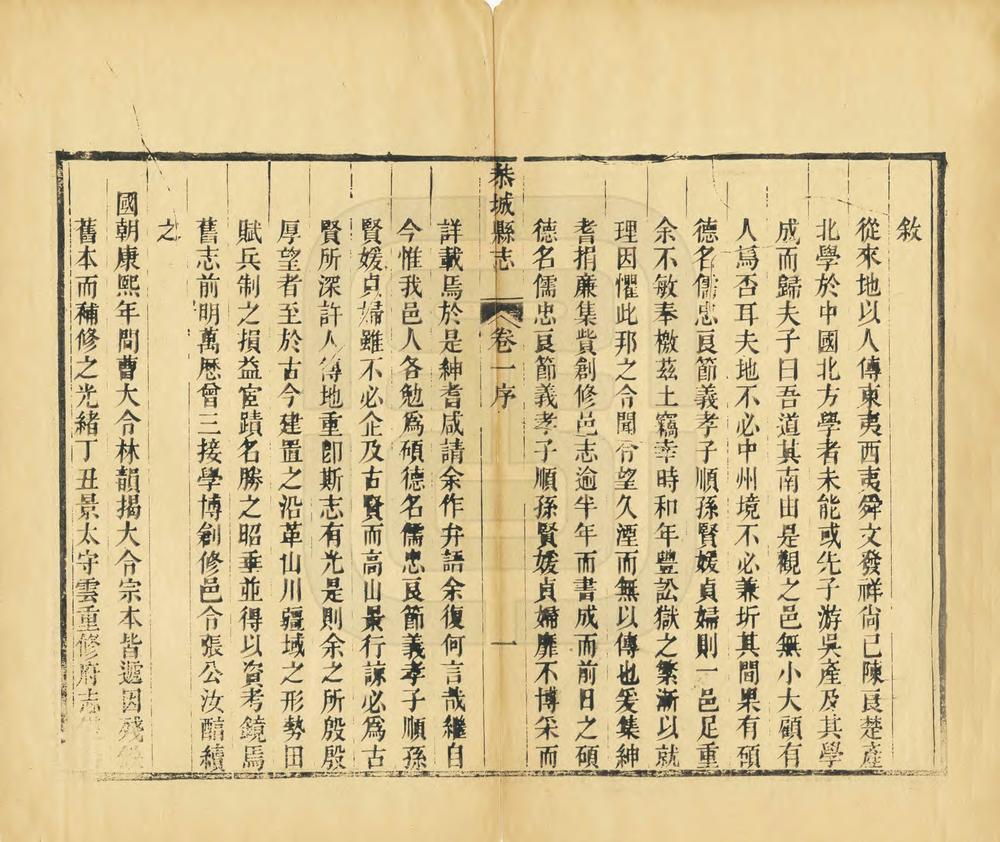 敘
從來地以人傳東夷西夷舜文發祥尚已陳良楚產
北學於中國北方學者未能或先子游吳產及其學
成而歸夫子曰吾道其南由是觀之邑無小大顧有
人焉否耳夫地不必中州境不必兼圻其間果有碩
德名儒忠良節義孝子順孫賢媛貞婦則一邑足重
余不敏奉檄茲土竊幸時和年豐訟獄之繁漸以就
理因懼此邦之令聞令望久湮而無以傳也爰集紳
耆捐廉集貲創修邑志逾半年而書成而前日之碩
德名儒忠良節義孝子順孫賢媛貞婦靡不博采而
恭城縣志
卷一序
一
詳載焉於是紳耆咸請余作弁語余復何言哉繼自
今惟我邑人各勉為碩德名儒忠良節義孝子順孫
賢媛貞婦雖不必企及古賢而高山景行諒必為古
賢所深許人得地重卽斯志有光是則余之所殷殷
厚望者至於古今建置之沿革山川疆域之形勢田
賦兵制之損益宦蹟名勝之昭垂並得以資考鏡焉
舊志前明萬厯曾三接學博創修邑令張公汝醕續
之
國朝康熙年間曹大令林韻揭大令宗本皆遞因殘
舊本而補修之光緒丁丑景太守雲重修府志